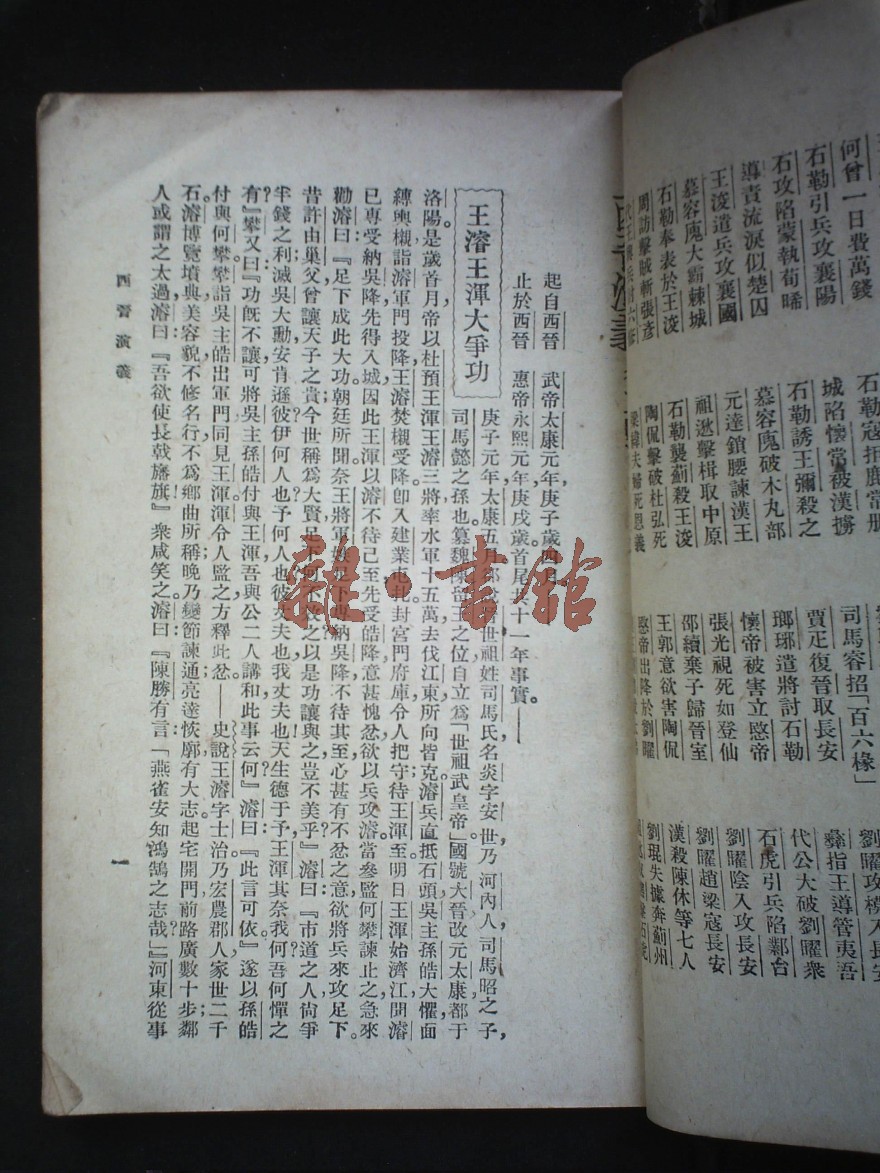 何曾一日費萬錢
石勒引兵攻襄陽
石攻陷蒙執荀晞
導責流淚似楚囚
王浚遣兵攻襄國
慕容廆大霸棘城
石勒奉表於王浚
周訪擊賊斬張彥
城陷懷當被漢擄
石勒誘王彌殺之
慕容廆破木丸部
元達鎖腰諫漢王
祖逖擊楫取中原
石勒襲薊殺王浚
陶侃擊破杜弘死
梁緯夫婦死恩義
司馬容招「百六椽」
賈疋復晉取長安
瑯琊遣將討石勒
懷帝被害立愍帝
張光視死如登仙
邵續棄子歸晉室
王郭意欲害陶侃
愍帝出降於劉曜
劉曜攻模入長安
彝指王導管夷吾
代公大破劉曜衆
石虎引兵陷鄴台
劉曜陰入攻長安
劉曜趙梁寇長安
漢殺陳休等七人
劉琨失據奔薊州
起自西晉　武帝太康元年庚子歲四月，
止於西晉　惠帝永熙元年庚戌歲首尾共十一年事實。——
王濬王渾大爭功
庚子元年太康五月
世祖姓司馬氏名炎字安世乃河內人司馬昭之子，
司馬懿之孫也篡魏陳留王之位自立爲「世祖武皇帝」國號大晉改元太康都于
洛陽。是歲首月帝以杜預王渾王濬三將率水軍十五萬去伐江東所向皆克濬兵直抵石頭吳主孫皓大懼面
縛輿櫬詣濬軍門投降王濬焚櫬受降卽入建業屯扎封宮門府庫令人把守待王渾至明日王渾始濟江聞濬
已專受納吳降先得入城因此王渾以濬不待己至先受皓降意甚愧忿欲以兵攻濬當參監何攀諫止之急來
勸濬曰：『足下成此大功朝廷所聞奈王將軍
納吳降不待其至心甚有不忿之意欲將兵來攻足下。
昔許由巢父曾讓天子之貴今世稱爲大賢足下何不效之以是功讓與之豈不美乎』濬曰：『市道之人尙爭
半錢之利滅吳大勳安肯遜彼伊何人也予何人也彼丈夫也我丈夫也天生德于予王渾其奈我何吾何憚之
有？』攀又曰：『功旣不讓可將吳主孫皓付與王渾吾與公二人講和此事云何』濬曰：『此言可依』遂以孫皓
付與何攀攀詣吳主皓出軍門同見王渾渾令人監之方釋此忿——史說王濬字士治乃宏農郡人家世二千
石。濬博覽墳典美容貌不修名行不爲鄉曲所稱晚乃變節諫通亮達恢廓有大志起宅開門前路廣數十步鄰
人或謂之太過濬曰：『吾欲使長戟旛旗』衆咸笑之濬曰：『陳勝有言「燕雀安知鴻鵠之志哉」』河東從事
西晉演義
一
雜·書館